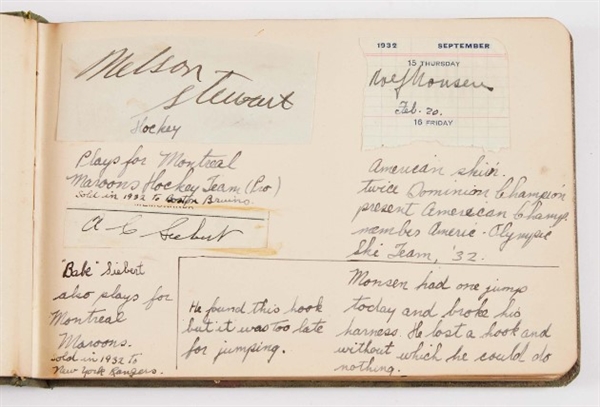 Nelson
Stewart
Hockey
Plays for Montreal
Maroons Hockey Team (Pro)
Sold in 1932 to Boston Bruins.
A C Siebert
"Babe" Siebert
also plays for
Montreal
Maroons.
Sold in 1932 to
New York Rangers.
1932 SEPTEMBER
15 THURSDAY
Rolf Monsen
Feb. 20.
16 FRIDAY
American skier.
twice Dominion Champion
present American Champ.
member Americ-Olympic
Ski Team, '32.
He found this hook
but it was too late
for jumping.
Monsen had one jump
today and broke his
harness. He lost a hook and
without which he could do
nothing.